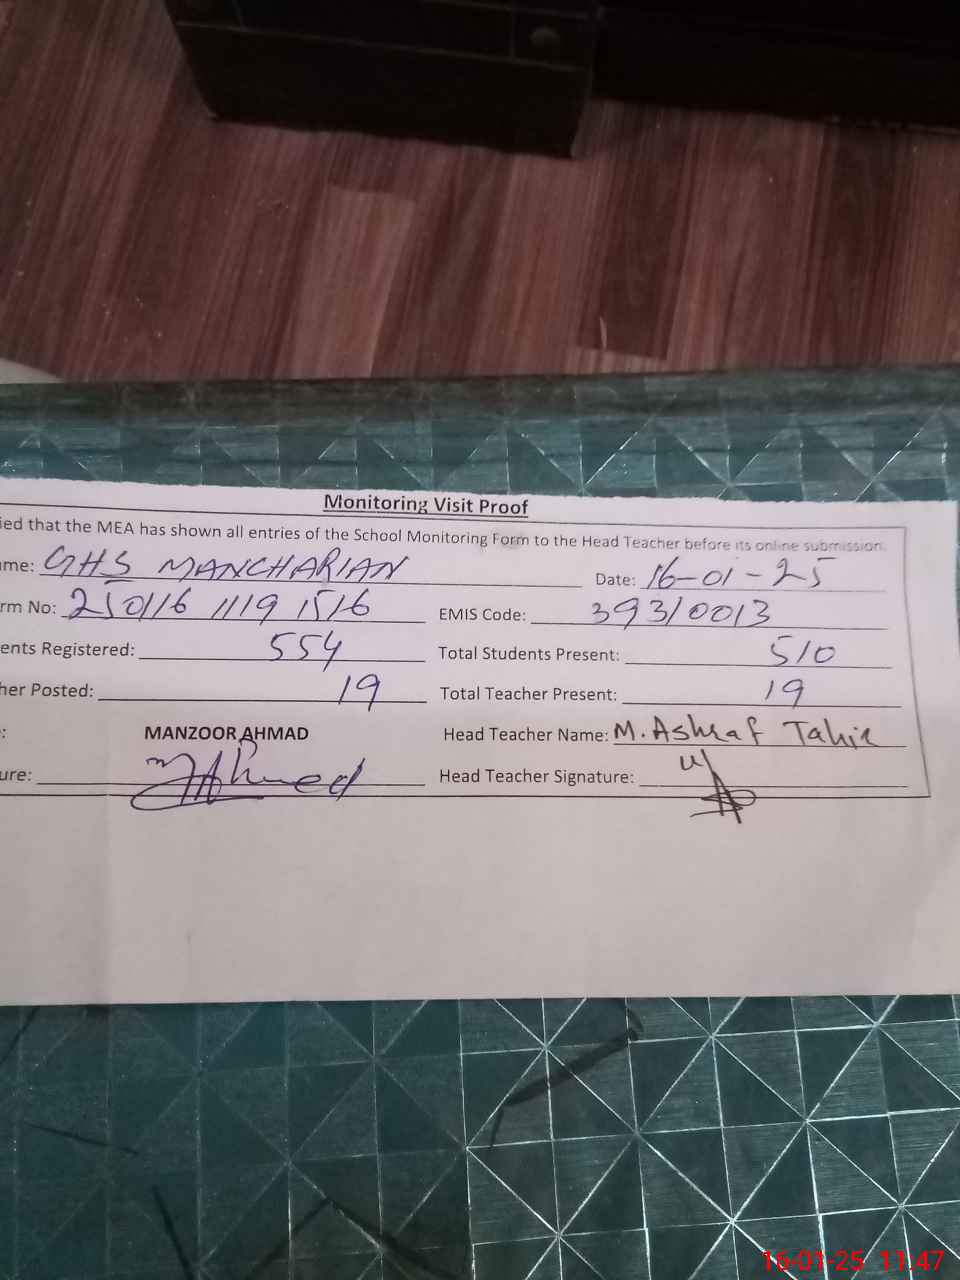 Monitoring Visit Proof
ied that the MEA has shown all entries of the School Monitoring Form to the Head Teacher before its online submission.
me: GHS MANCHARIAN Date: 16-01-25
rm No: 250116 1119 1516 EMIS Code: 39310013
ents Registered: 554 Total Students Present: 510
her Posted: 19 Total Teacher Present: 19
: MANZOOR AHMAD Head Teacher Name: M. Ashraf Tahir
ure: MAhmed Head Teacher Signature:
16-01-25 11:47